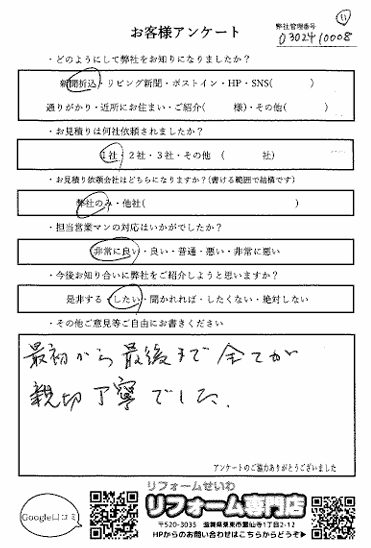 ⑪
お客様アンケート
弊社管理番号
0302410008
・どのようにして弊社をお知りになりましたか?
新聞折込・リビング新聞・ポストイン・HP・SNS( )
通りがかり・近所にお住まい・ご紹介( 様)・その他( )
・お見積りは何社依頼されましたか?
1社・2社・3社・その他 ( 社)
・お見積り依頼会社はどちらになりますか?(書ける範囲で結構です)
弊社のみ・他社( )
・担当営業マンの対応はいかがでしたか?
非常に良い・良い・普通・悪い・非常に悪い
・今後お知り合いに弊社をご紹介しようと思いますか?
是非する・したい・聞かれれば・したくない・絶対しない
・その他ご意見等ご自由にお書きください
最初から最後まで全てが
親切丁寧でした.
アンケートのご協力ありがとうございました
Google口コミ
リフォームせいわ
リフォーム専門店
〒520-3035 滋賀県栗東市霊仙寺1丁目2-12
HPからのお問い合わせはこちらからどうぞ▶